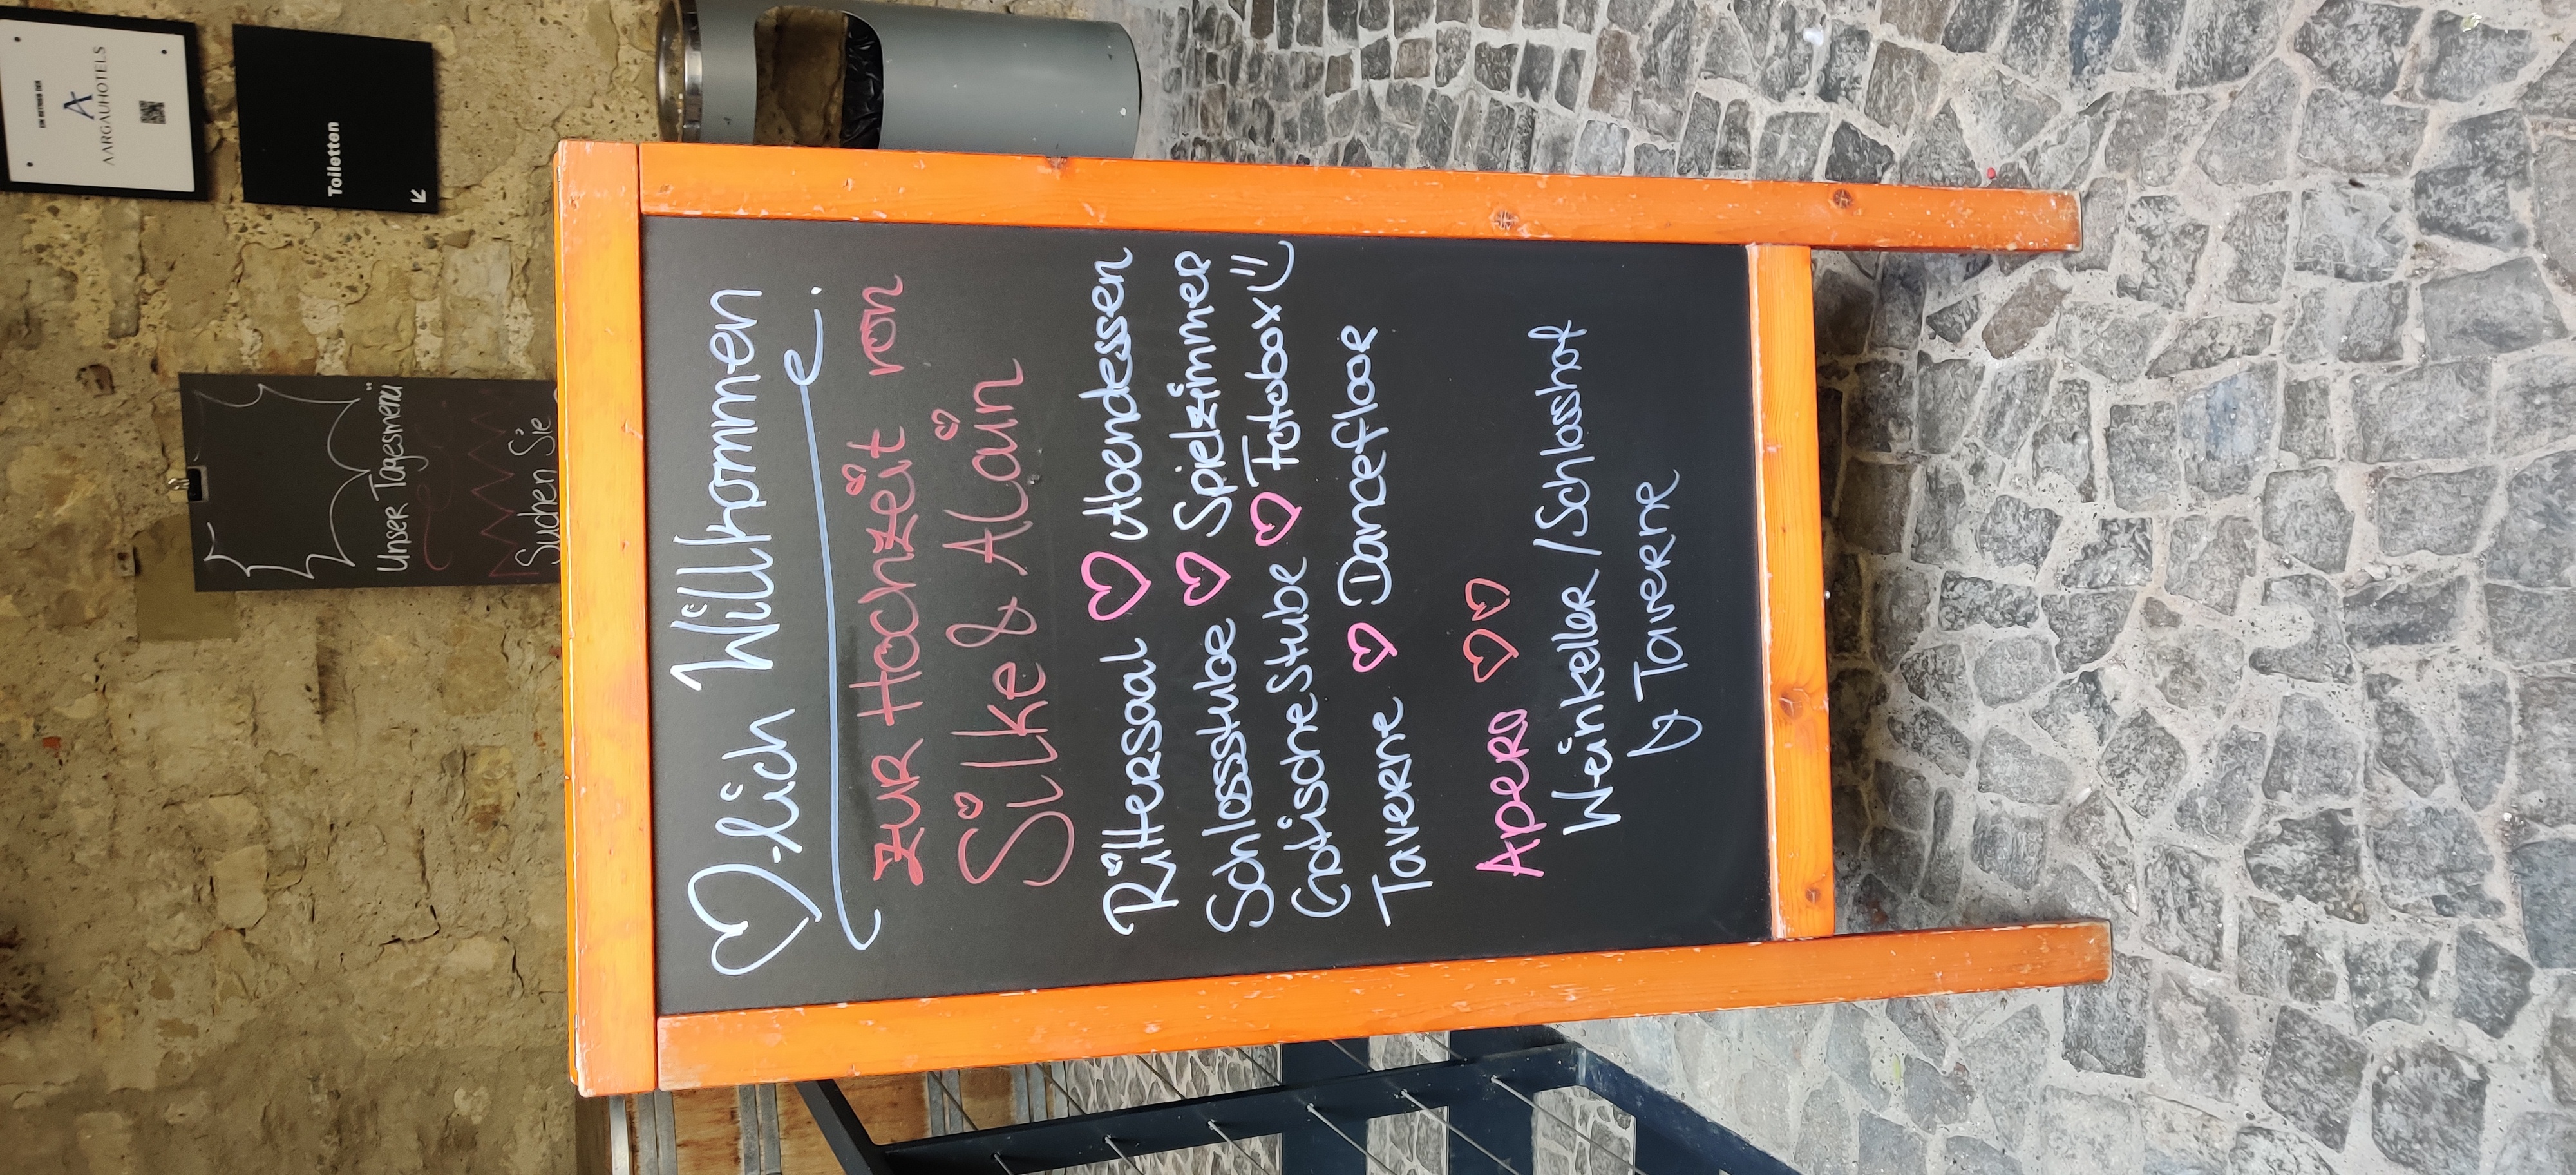 ♡-lich Willkommen
zur Hochzeit von
Silke & Alain
Rittersaal ♡ Abendessen
Schlossstube ♡ Spielzimmer
Gotische Stube ♡ Fotobox!!
Taverne ♡ Dancefloor
Apero ♡♡
Weinkeller / Schlosshof
↳ Taverne
Unser Tagesmenü
Suchen Sie
EIN BETRIEB DER
AARGAUHOTELS
Toiletten
↙